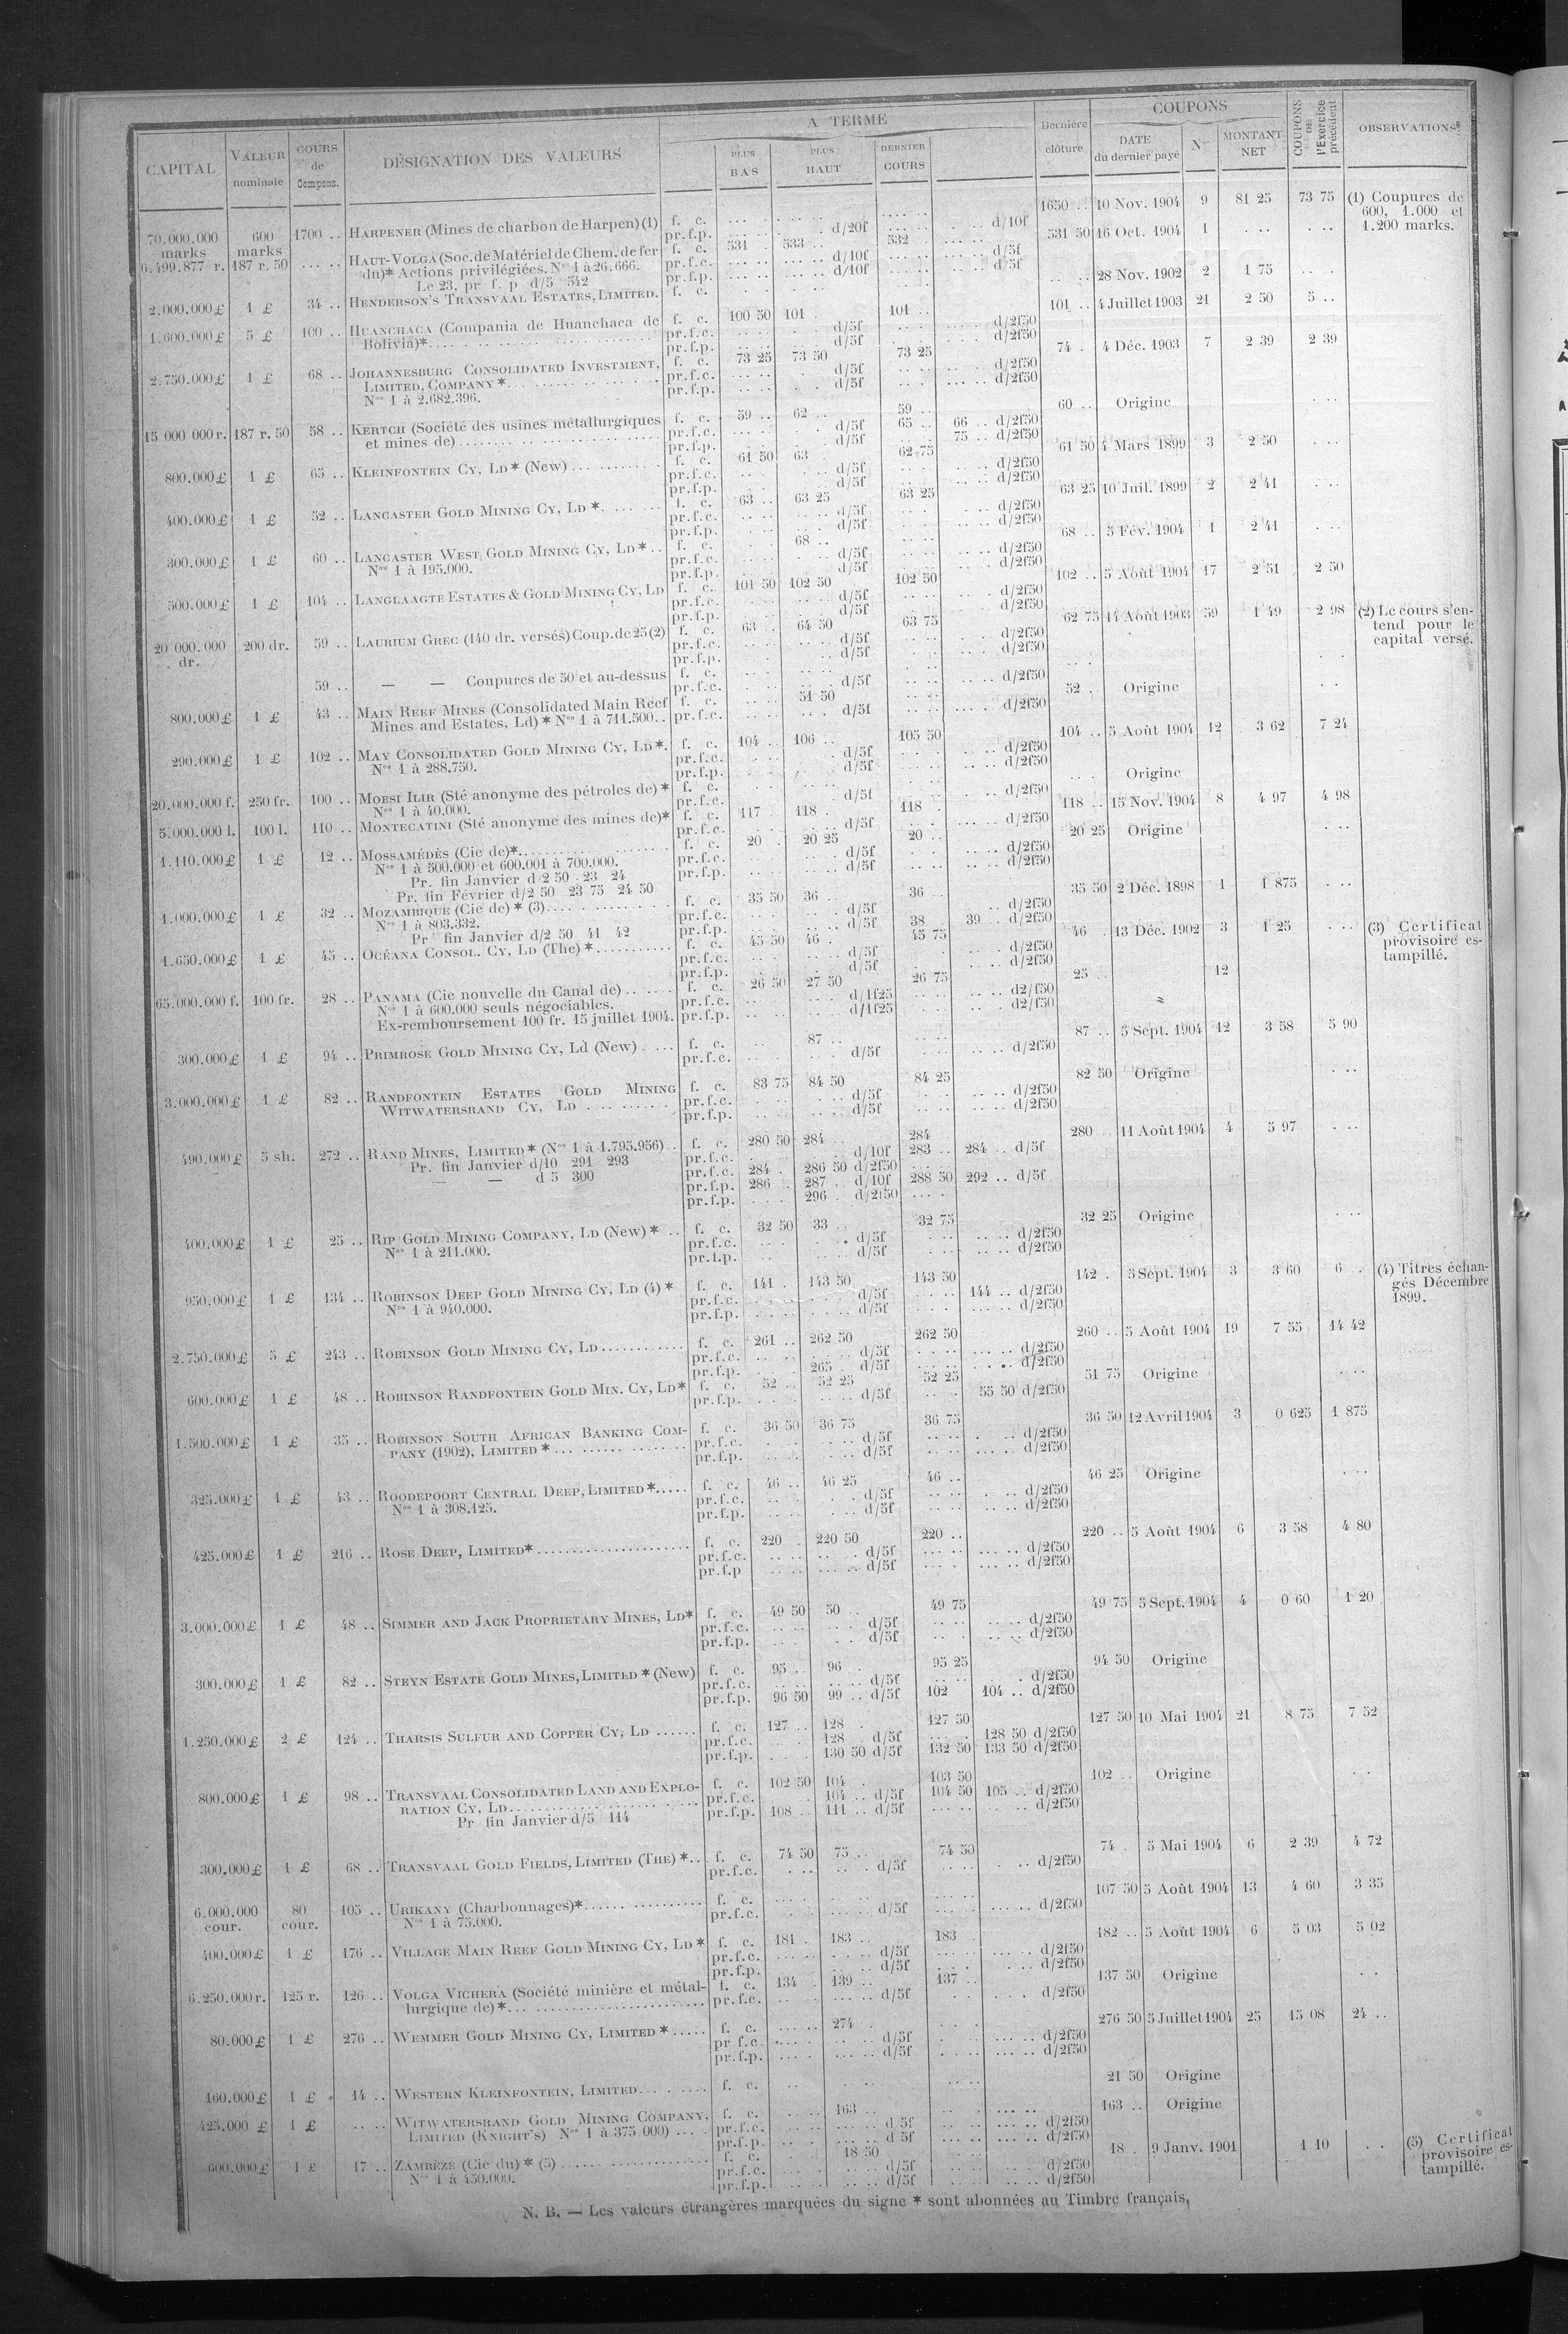 CAPITAL | VALEUR nominale | COURS de Compens. | DÉSIGNATION DES VALEURS | A TERME | PLUS BAS | PLUS HAUT | DERNIER COURS | Dernière clôture | COUPONS | DATE du dernier payé | Nos | MONTANT NET | COUPONS DE l'Exercice précédent | OBSERVATIONS
70.000.000 marks | 600 marks | 1700 .. | HARPENER (Mines de charbon de Harpen) (1) | f. c. | 1650 .. | 10 Nov. 1904 | 9 | 81 25 | 73 75 | (1) Coupures de 600, 1.000 et 1.200 marks.
pr.f.p. | d/20f | d/10f
6.499.877 r. | 187 r. 50 | HAUT-VOLGA (Soc. de Matériel de Chem. de fer | f. c. | 531 | 533 .. | 532 | 531 50 | 16 Oct. 1904 | 1
du)* Actions privilégiées. Nos 1 à 26.666. | pr.f.c. | d/10f | d/5f
Le 23, pr f. p d/5 542 | pr.f.p. | d/10f | d/5f
2.000.000 £ | 1 £ | 34 .. | HENDERSON'S TRANSVAAL ESTATES, LIMITED. | f. c. | 28 Nov. 1902 | 2 | 1 75
1.600.000 £ | 5 £ | 100 .. | HUANCHACA (Compania de Huanchaca de | f. c. | 100 50 | 101 | 101 .. | 101 .. | 4 Juillet 1903 | 21 | 2 50 | 5 ..
Bolivia)* | pr.f.c. | d/5f | d/2f50
pr.f.p. | d/5f | d/2f50
2.750.000 £ | 1 £ | 68 .. | JOHANNESBURG CONSOLIDATED INVESTMENT, | f. c. | 73 25 | 73 50 | 73 25 | 74 . | 4 Déc. 1903 | 7 | 2 39 | 2 39
LIMITED, COMPANY* | pr.f.c. | d/5f | d/2f50
Nos 1 à 2.682.396. | pr.f.p. | d/5f | d/2f50
15 000 000 r. | 187 r. 50 | 58 .. | KERTCH (Société des usines métallurgiques | f. c. | 59 .. | 62 .. | 59 .. | 60 .. | Origine
et mines de) | pr.f.c. | d/5f | 65 .. | 66 .. d/2f50
pr.f.p. | d/5f | 75 .. d/2f50
800.000 £ | 1 £ | 65 .. | KLEINFONTEIN CY, LD* (New) | f. c. | 61 50 | 63 . | 62 75 | 61 50 | 4 Mars 1899 | 3 | 2 50
pr.f.c. | d/5f | d/2f50
pr.f.p. | d/5f | d/2f50
400.000 £ | 1 £ | 52 .. | LANCASTER GOLD MINING CY, LD* | f. c. | 63 .. | 63 25 | 63 25 | 63 25 | 10 Juil. 1899 | 2 | 2 41
pr.f.c. | d/5f | d/2f50
pr.f.p. | d/5f | d/2f50
300.000 £ | 1 £ | 60 .. | LANCASTER WEST GOLD MINING CY, LD* | f. c. | 68 .. | 68 .. | 5 Fév. 1904 | 1 | 2 41
Nos 1 à 195.000. | pr.f.c. | d/5f | d/2f50
pr.f.p. | d/5f | d/2f50
500.000 £ | 1 £ | 104 .. | LANGLAAGTE ESTATES & GOLD MINING CY, LD | f. c. | 101 50 | 102 50 | 102 50 | 102 .. | 5 Août 1904 | 17 | 2 51 | 2 50
pr.f.c. | d/5f | d/2f50
pr.f.p. | d/5f | d/2f50
20 000.000 dr. | 200 dr. | 59 .. | LAURIUM GREC (140 dr. versés) Coup. de 25 (2) | f. c. | 63 . | 64 50 | 63 75 | 62 75 | 14 Août 1903 | 59 | 1 49 | 2 98 | (2) Le cours s'entend pour le capital versé.
pr.f.c. | d/5f | d/2f50
pr.f.p. | d/5f | d/2f50
59 .. | — — Coupures de 50 et au-dessus | f. c.
pr.f.c. | d/5f | d/2f50
800.000 £ | 1 £ | 43 .. | MAIN REEF MINES (Consolidated Main Reef | f. c. | 51 50 | 52 . | Origine
Mines and Estates, Ld)* Nos 1 à 711.500 | pr.f.c. | d/5f | d/2f50
290.000 £ | 1 £ | 102 .. | MAY CONSOLIDATED GOLD MINING CY, LD*. | f. c. | 104 .. | 106 .. | 105 50 | 104 .. | 5 Août 1904 | 12 | 3 62 | 7 24
Nos 1 à 288.750. | pr.f.c. | d/5f | d/2f50
pr.f.p. | d/5f | d/2f50
20.000.000 f. | 250 fr. | 100 .. | MOESI ILIR (Sté anonyme des pétroles de)* | f. c. | Origine
Nos 1 à 40.000. | pr.f.c. | d/5f | d/2f50
5.000.000 l. | 100 l. | 110 .. | MONTECATINI (Sté anonyme des mines de)* | f. c. | 117 . | 118 . | 118 . | 118 .. | 15 Nov. 1904 | 8 | 4 97 | 4 98
pr.f.c. | d/5f | d/2f50
1.110.000 £ | 1 £ | 12 .. | MOSSAMÉDÈS (Cie de)* | f. c. | 20 . | 20 25 | 20 .. | 20 25 | Origine
Nos 1 à 500.000 et 600.001 à 700.000. | pr.f.c. | d/5f | d/2f50
Pr. fin Janvier d/2 50 23 24 | pr.f.p. | d/5f | d/2f50
Pr. fin Février d/2 50 23 75 24 50
1.000.000 £ | 1 £ | 32 .. | MOZAMBIQUE (Cie de)* (3) | f. c. | 35 50 | 36 .. | 36 .. | 35 50 | 2 Déc. 1898 | 1 | 1 875
Nos 1 à 803.332. | pr.f.c. | d/5f | d/2f50
Pr fin Janvier d/2 50 41 42 | pr.f.p. | d/5f | 38 .. | 39 .. d/2f50
1.650.000 £ | 1 £ | 45 .. | OCÉANA CONSOL. CY, LD (The)* | f. c. | 45 50 | 46 . | 45 75 | 46 | 13 Déc. 1902 | 3 | 1 25 | (3) Certificat provisoire estampillé.
pr.f.c. | d/5f | d/2f50
pr.f.p. | d/5f | d/2f50
65.000.000 f. | 100 fr. | 28 .. | PANAMA (Cie nouvelle du Canal de) | f. c. | 26 50 | 27 50 | 26 75 | 25 .. | 12
Nos 1 à 600.000 seuls négociables. | pr.f.c. | d/1f25 | d2/f50
Ex-remboursement 100 fr. 15 juillet 1904. | pr.f.p. | d/1f25 | d2/f50
300.000 £ | 1 £ | 94 .. | PRIMROSE GOLD MINING CY, Ld (New) | f. c. | 87 .. | 87 .. | 5 Sept. 1904 | 12 | 3 58 | 5 90
pr.f.c. | d/5f | d/2f50
3.000.000 £ | 1 £ | 82 .. | RANDFONTEIN ESTATES GOLD MINING | f. c. | 83 75 | 84 50 | 84 25 | 82 50 | Origine
WITWATERSRAND CY, LD | pr.f.c. | d/5f | d/2f50
pr.f.p. | d/5f | d/2f50
490.000 £ | 5 sh. | 272 .. | RAND MINES, LIMITED* (Nos 1 à 1.795.956) | f. c. | 280 50 | 284 .. | 284 . | 280 .. | 11 Août 1904 | 4 | 5 97
Pr. fin Janvier d/10 291 293 | pr.f.c. | d/10f | 283 .. | 284 .. d/5f
— — d 5 300 | pr.f.c. | 284 . | 286 50 d/2f50
pr.f.p. | 286 .. | 287 .. d/10f | 288 50 | 292 .. d/5f
pr.f.p. | 296 . d/2f50
400.000 £ | 1 £ | 25 .. | RIP GOLD MINING COMPANY, LD (New)* | f. c. | 32 50 | 33 .. | 32 75 | 32 25 | Origine
Nos 1 à 211.000. | pr.f.c. | d/5f | d/2f50
pr.f.p. | d/5f | d/2f50
950.000 £ | 1 £ | 134 .. | ROBINSON DEEP GOLD MINING CY, LD (4)* | f. c. | 141 . | 143 50 | 143 50 | 142 . | 5 Sept. 1904 | 3 | 3 60 | 6 . | (4) Titres échangés Décembre 1899.
Nos 1 à 940.000. | pr.f.c. | d/5f | 144 .. d/2f50
pr.f.p. | d/5f | d/2f50
2.750.000 £ | 5 £ | 243 .. | ROBINSON GOLD MINING CY, LD | f. c. | 261 .. | 262 50 | 262 50 | 260 .. | 5 Août 1904 | 19 | 7 55 | 14 42
pr.f.c. | d/5f | d/2f50
pr.f.p. | 265 . d/5f | d/2f50
600.000 £ | 1 £ | 48 .. | ROBINSON RANDFONTEIN GOLD MIN. CY, LD* | f. c. | 52 .. | 52 25 | 52 25 | 51 75 | Origine
pr.f.p. | d/5f | 55 50 d/2f50
1.500.000 £ | 1 £ | 35 .. | ROBINSON SOUTH AFRICAN BANKING COM- | f. c. | 36 50 | 36 75 | 36 75 | 36 50 | 12 Avril 1904 | 3 | 0 625 | 1 875
PANY (1902), LIMITED* | pr.f.c. | d/5f | d/2f50
pr.f.p. | d/5f | d/2f50
325.000 £ | 1 £ | 43 .. | ROODEPOORT CENTRAL DEEP, LIMITED* | f. c. | 46 .. | 46 25 | 46 .. | 46 25 | Origine
Nos 1 à 308.125. | pr.f.c. | d/5f | d/2f50
pr.f.p. | d/5f | d/2f50
425.000 £ | 1 £ | 216 .. | ROSE DEEP, LIMITED* | f. c. | 220 . | 220 50 | 220 .. | 220 .. | 5 Août 1904 | 6 | 3 58 | 4 80
pr.f.c. | d/5f | d/2f50
pr.f.p | d/5f | d/2f50
3.000.000 £ | 1 £ | 48 .. | SIMMER AND JACK PROPRIETARY MINES, LD* | f. c. | 49 50 | 50 .. | 49 75 | 49 75 | 5 Sept. 1904 | 4 | 0 60 | 1 20
pr.f.c. | d/5f | d/2f50
pr.f.p. | d/5f | d/2f50
300.000 £ | 1 £ | 82 .. | STEYN ESTATE GOLD MINES, LIMITED* (New) | f. c. | 95 .. | 96 . | 95 25 | 94 50 | Origine
pr.f.c. | d/5f | d/2f50
pr.f.p. | 96 50 | 99 .. d/5f | 102 | 104 .. d/2f50
1.250.000 £ | 2 £ | 124 .. | THARSIS SULFUR AND COPPER CY, LD | f. c. | 127 .. | 128 . | 127 50 | 127 50 | 10 Mai 1904 | 21 | 8 75 | 7 52
pr.f.c. | 128 . d/5f | 128 50 d/2f50
pr.f.p. | 130 50 d/5f | 132 50 | 133 50 d/2f50
800.000 £ | 1 £ | 98 .. | TRANSVAAL CONSOLIDATED LAND AND EXPLO- | f. c. | 102 50 | 104 . | 103 50 | 102 .. | Origine
RATION CY, LD | pr.f.c. | 104 .. d/5f | 104 50 | 105 .. d/2f50
Pr fin Janvier d/5 114 | pr.f.p. | 108 .. | 111 .. d/5f | d/2f50
300.000 £ | 1 £ | 68 .. | TRANSVAAL GOLD FIELDS, LIMITED (THE)* | f. c. | 74 50 | 75 .. | 74 50 | 74 . | 5 Mai 1904 | 6 | 2 39 | 4 72
pr.f.c. | d/5f | d/2f50
6.000.000 cour. | 80 cour. | 105 .. | URIKANY (Charbonnages)* | f. c. | 107 50 | 5 Août 1904 | 13 | 4 60 | 3 35
Nos 1 à 75.000. | pr.f.c. | d/5f | d/2f50
400.000 £ | 1 £ | 176 .. | VILLAGE MAIN REEF GOLD MINING CY, LD* | f. c. | 181 . | 183 .. | 183 . | 182 .. | 5 Août 1904 | 6 | 5 03 | 5 02
pr.f.c. | d/5f | d/2f50
pr.f.p. | d/5f | d/2f50
6.250.000 r. | 125 r. | 126 .. | VOLGA VICHERA (Société minière et métal- | f. c. | 134 . | 139 .. | 137 .. | 137 50 | Origine
lurgique de)* | pr.f.c. | d/5f | d/2f50
80.000 £ | 1 £ | 276 .. | WEMMER GOLD MINING CY, LIMITED* | f. c. | 274 . | 276 50 | 5 Juillet 1904 | 25 | 15 08 | 24 ..
pr f.c. | d/5f | d/2f50
pr.f.p. | d/5f | d/2f50
160.000 £ | 1 £ | 14 .. | WESTERN KLEINFONTEIN, LIMITED | f. c. | 21 50 | Origine
425.000 £ | 1 £ | WITWATERSRAND GOLD MINING COMPANY, | f. c. | 163 .. | 163 .. | Origine
LIMITED (KNIGHT'S) Nos 1 à 375 000) | pr.f.c. | d 5f | d/2f50
pr.f.p. | d 5f | d/2f50
600.000 £ | 1 £ | 17 .. | ZAMBÈZE (Cie du)* (5) | f. c. | 18 50 | 18 . | 9 Janv. 1901 | 1 10 | (5) Certificat provisoire estampillé.
Nos 1 à 450.000. | pr.f.c. | d/5f | d/2f50
pr.f.p. | d/5f | d/2f50
N. B. — Les valeurs étrangères marquées du signe * sont abonnées au Timbre français.